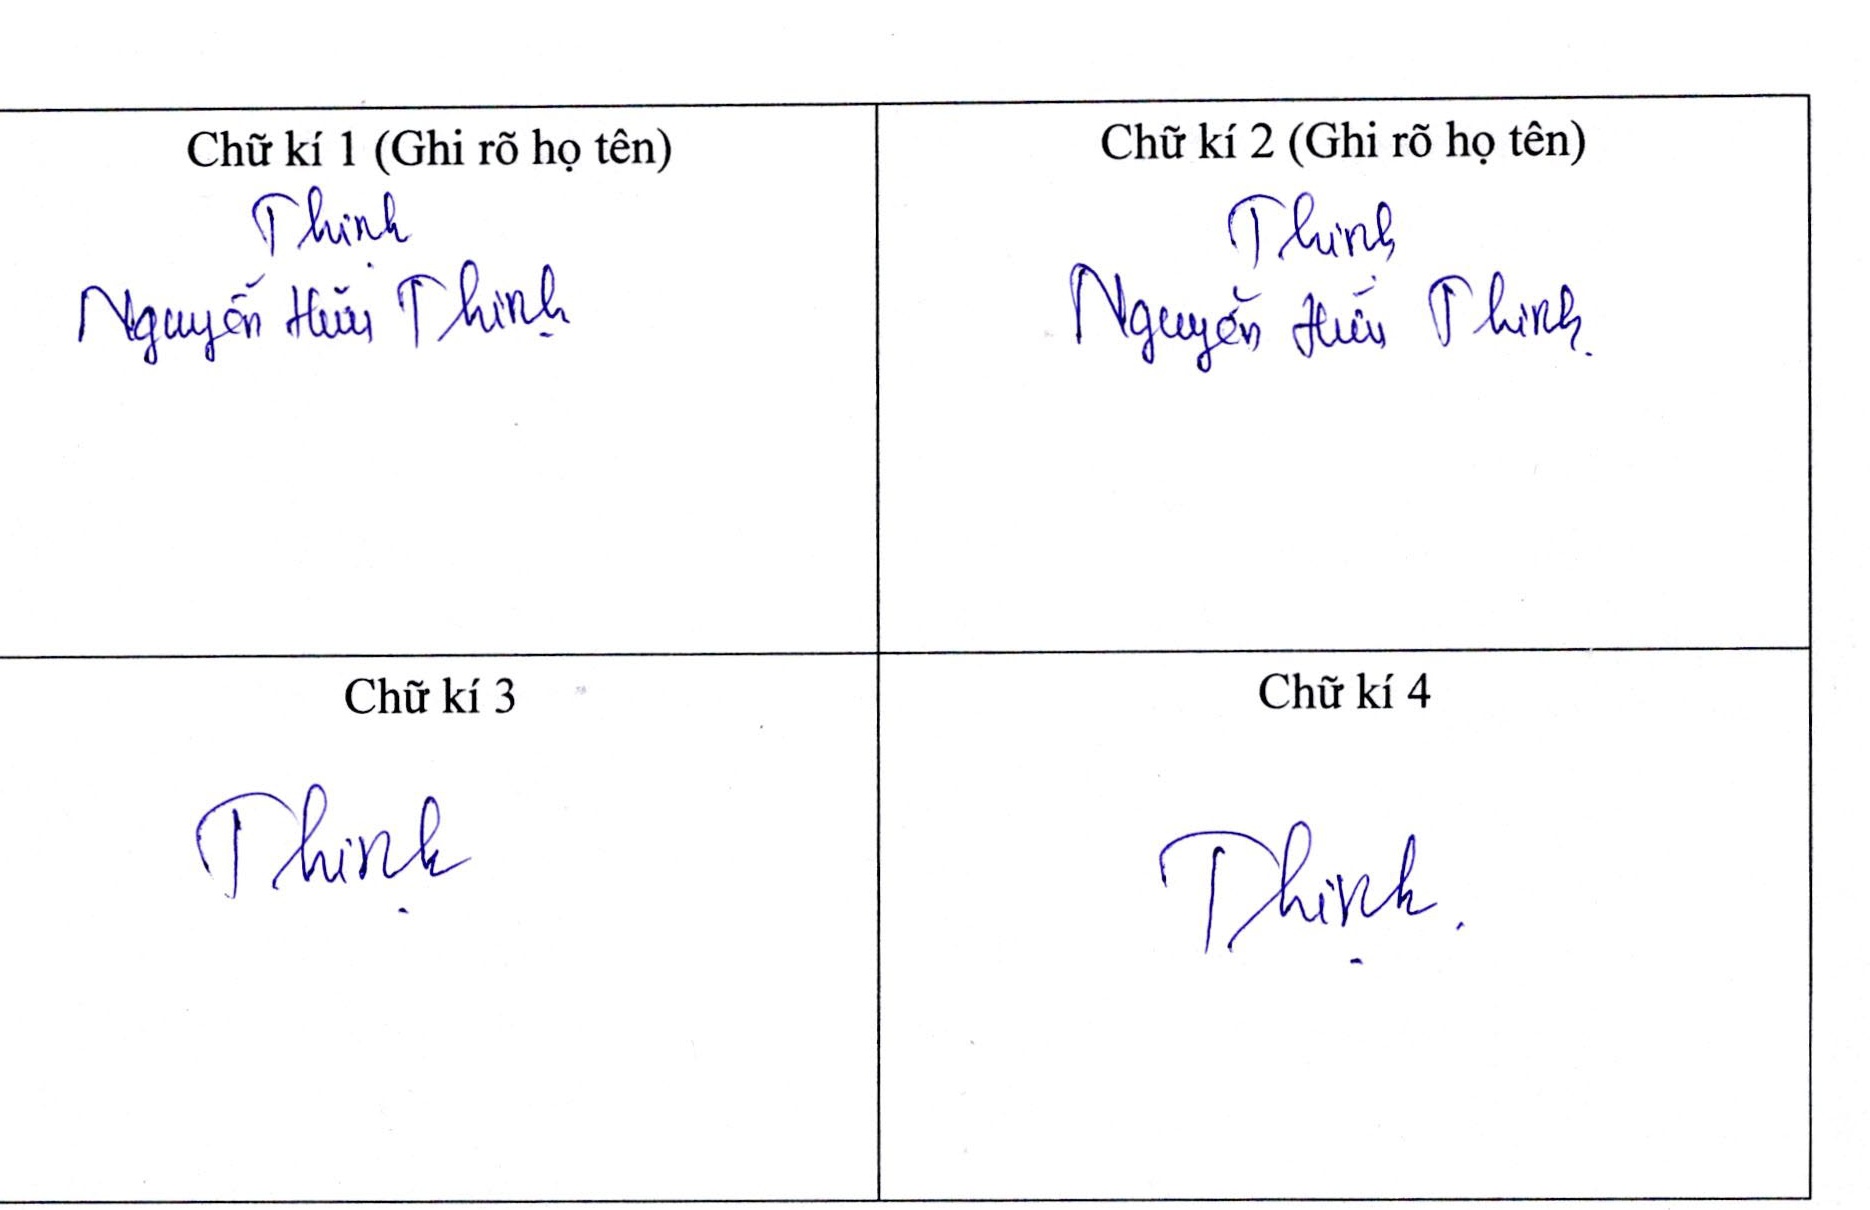 Chữ kí 1 (Ghi rõ họ tên)
Thịnh
Nguyễn Hữu Thịnh
Chữ kí 2 (Ghi rõ họ tên)
Thịnh
Nguyễn Hữu Thịnh
Chữ kí 3
Thịnh
Chữ kí 4
Thịnh.